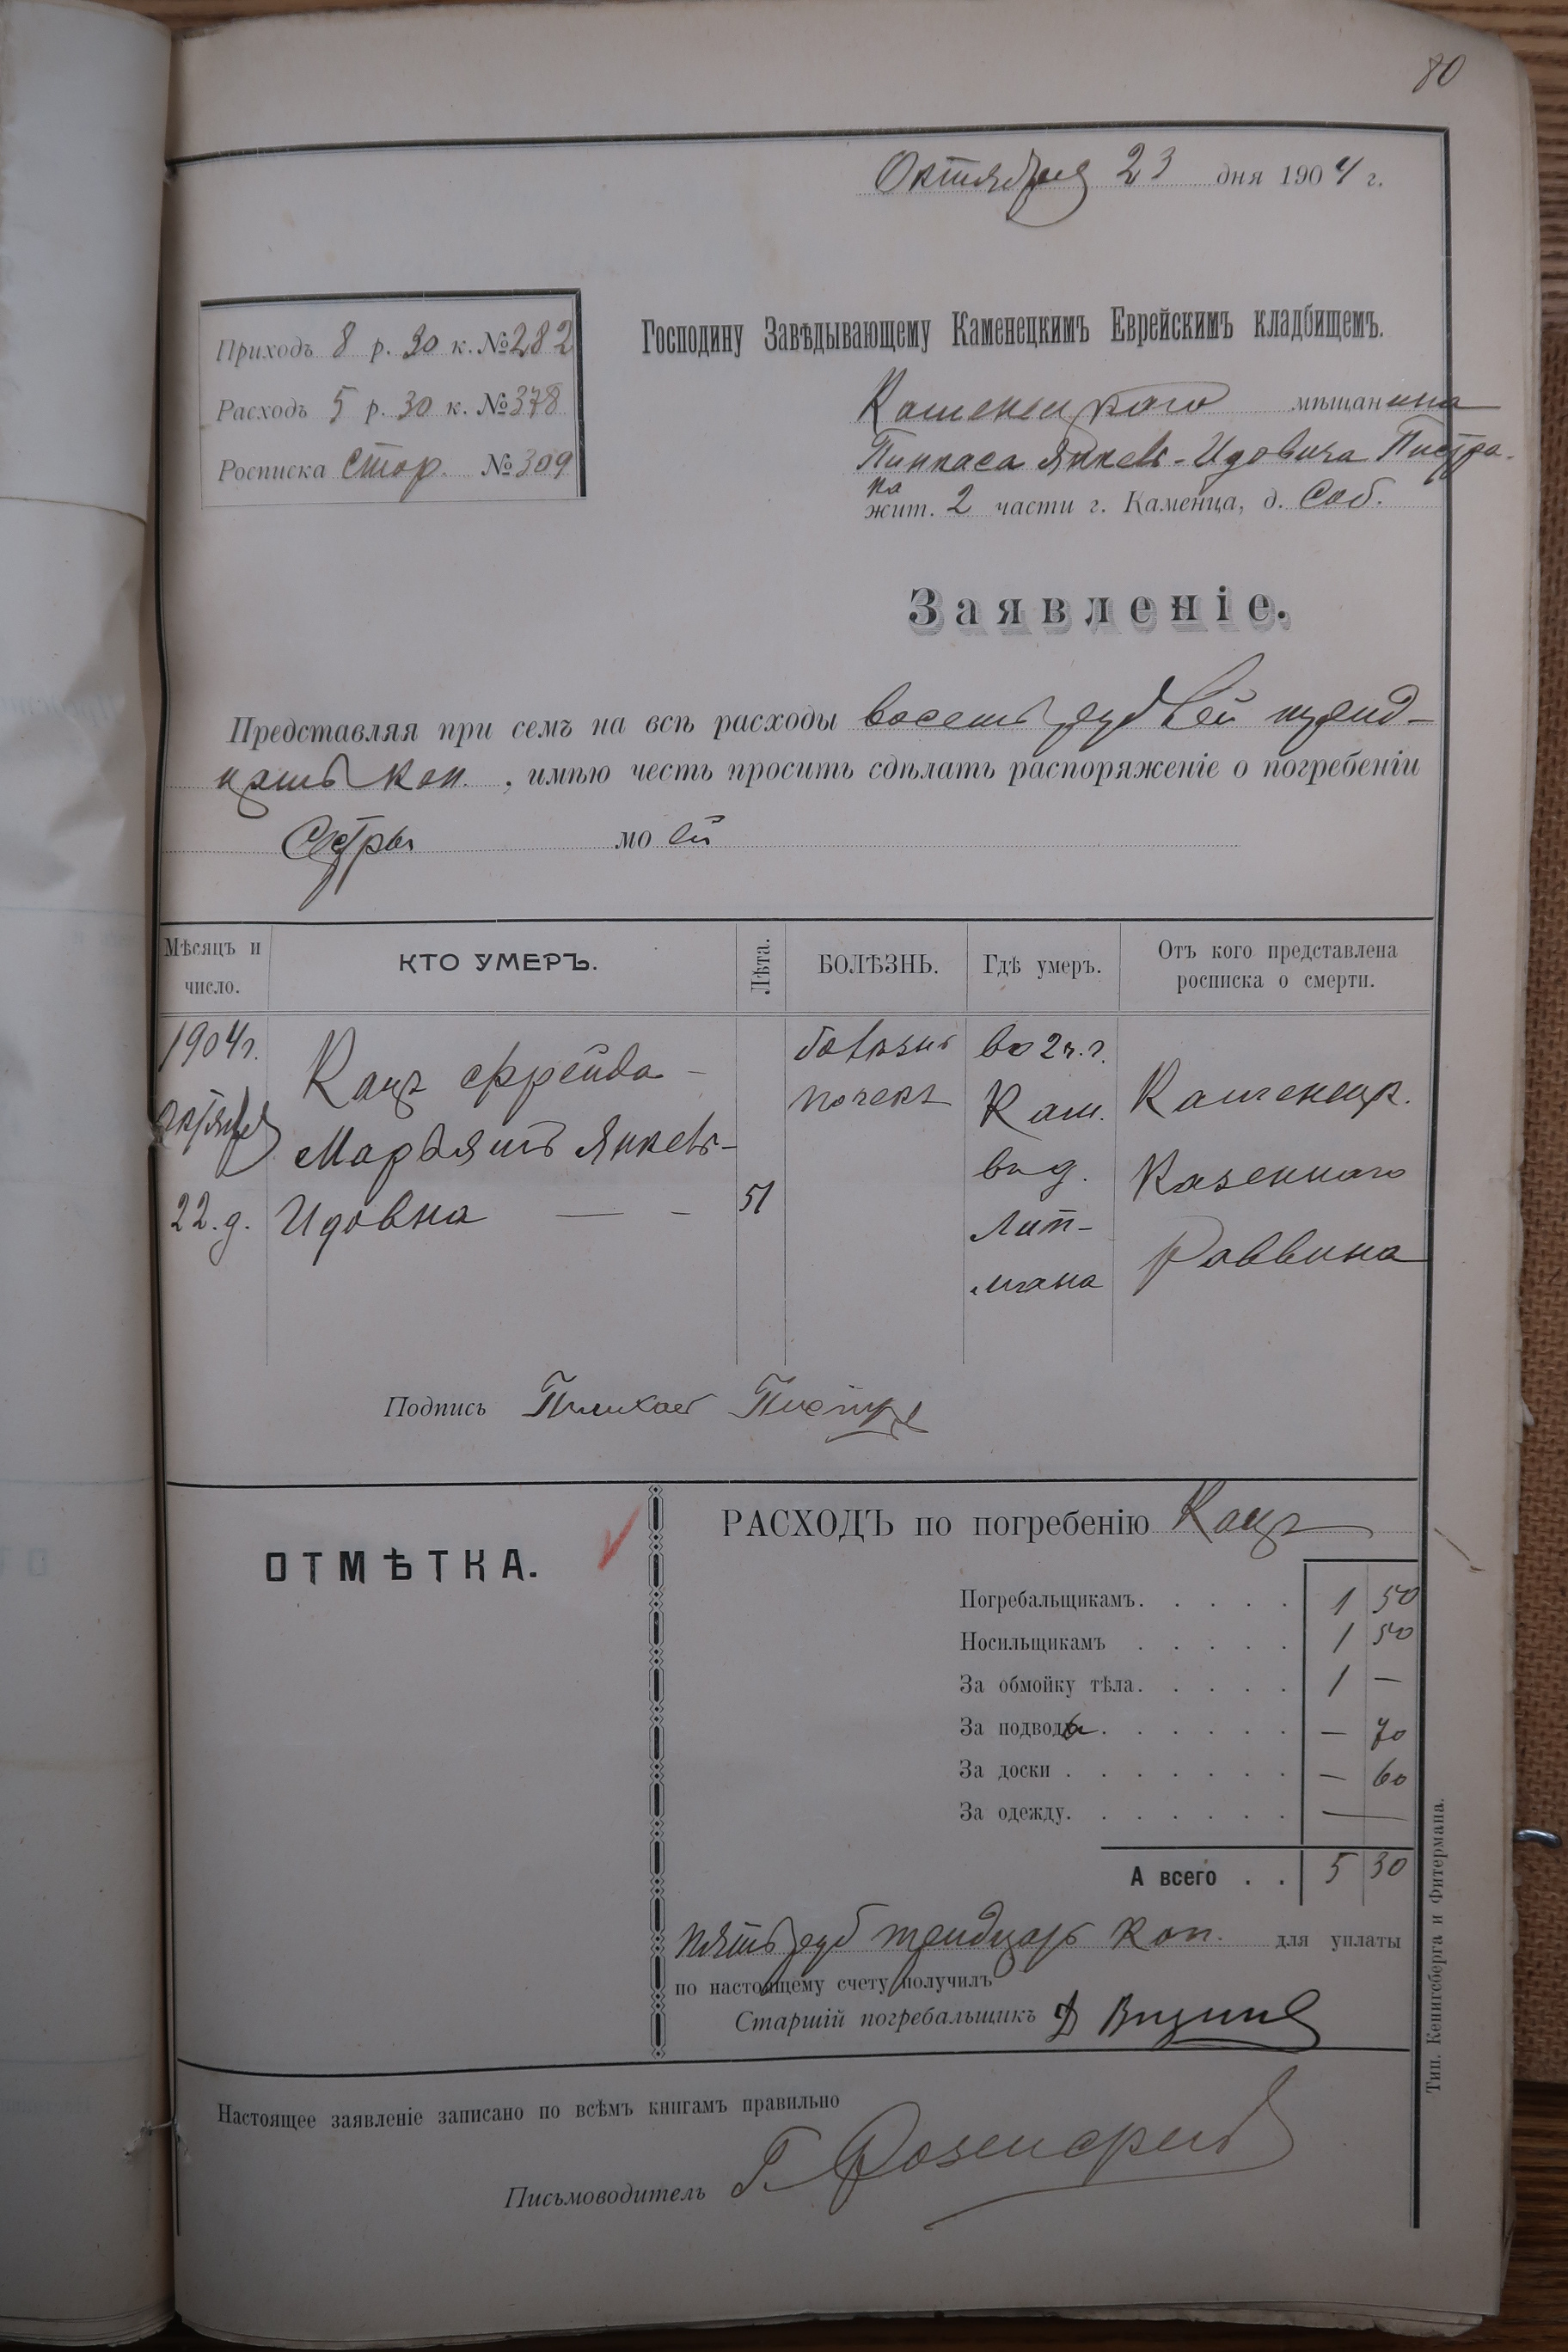 80
Октября 23 дня 1904 г.
Приходъ 8 р. 30 к. №282
Расходъ 5 р. 30 к. №378
Росписка Стор. №309
Господину Завѣдывающему Каменецкимъ Еврейскимъ кладбищемъ.
Каменецкаго мѣщанина
Пинхаса Янкель-Идовича Пистра-
ка
жит. 2 части г. Каменца, д. Соб.
Заявленіе.
Представляя при семъ на всѣ расходы восемь рублей тридъ-
цать коп. , имѣю честь просить сдѣлать распоряженіе о погребеніи
Сестры моей
Мѣсяцъ и число.
КТО УМЕРЪ.
Лѣта.
БОЛѢЗНЬ.
Гдѣ умеръ.
Отъ кого представлена росписка о смерти.
1904г.
октября
22.д.
Кацъ Фрейда-
Марьямъ Янкель-
Идовна — -
51
болѣзнь
почекъ
во 2ч.г.
Кам.
въ д.
Лит-
мана
Каменецк.
Казеннаго
Раввина
Подпись Пинхас
ОТМѢТКА.
РАСХОДЪ по погребенію Кацъ
Погребальщикамъ. . . . . 1 50
Носильщикамъ . . . . . 1 50
За обмойку тѣла. . . . . 1 —
За подводы . . . . . . — 70
За доски . . . . . . . — 60
За одежду. . . . . . . —
А всего . . 5 30
пять руб тридцать коп. для уплаты
по настоящему счету получилъ
Старшій погребальщикъ
Настоящее заявленіе записано по всѣмъ книгамъ правильно
Письмоводитель Г.
Тип. Кенигсберга и Фитермана.